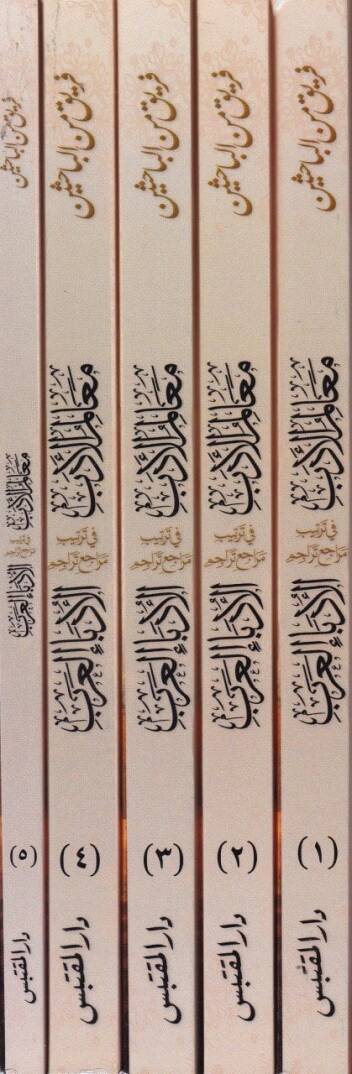 فريق من الباحثين
معالم الأدب
في ترتيب
مراجع تراجم
الأدباء العرب
(١)
دار المقتبس
فريق من الباحثين
معالم الأدب
في ترتيب
مراجع تراجم
الأدباء العرب
(٢)
دار المقتبس
فريق من الباحثين
معالم الأدب
في ترتيب
مراجع تراجم
الأدباء العرب
(٣)
دار المقتبس
فريق من الباحثين
معالم الأدب
في ترتيب
مراجع تراجم
الأدباء العرب
(٤)
دار المقتبس
فريق من الباحثين
معالم الأدب
في ترتيب
مراجع تراجم
الأدباء العرب
(٥)
دار المقتبس